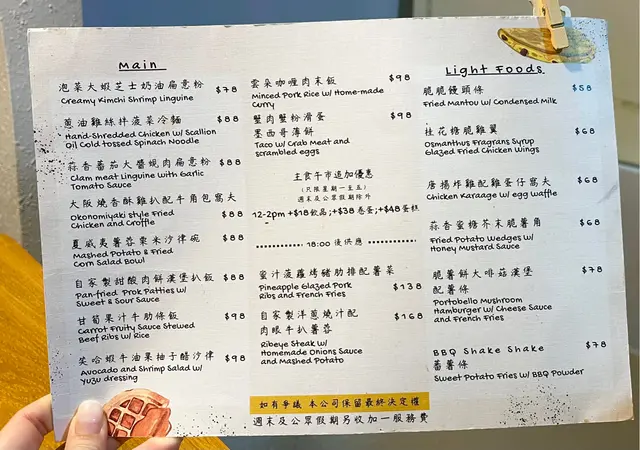 Main
泡菜大蝦芝士奶油扁意粉 $78
Creamy Kimchi Shrimp Linguine
蔥油雞絲拌菠菜冷麵 $88
Hand-Shredded Chicken w/ Scallion
Oil Cold tossed Spinach Noodle
蒜香蕃茄大醬蜆肉扁意粉 $88
Clam meat Linguine with Garlic
Tomato Sauce
大阪燒香酥雞扒配牛角包窩夫
Okonomiyaki style Fried $88
Chicken and Croffle
夏威夷薯蓉粟米沙律碗 $88
Mashed Potato & Fried
Corn Salad Bowl
自家製甜酸肉餅漢堡扒飯 $88
Pan-fried Prok Patties w/
Sweet & Sour Sauce
甘筍果汁牛肋條飯 $98
Carrot Fruity Sauce Stewed
Beef Ribs w/ Rice
笑哈蝦牛油果柚子醋沙律 $98
Avocado and Shrimp Salad w/
Yuzu dressing
雲朵咖喱肉末飯 $98
Minced Pork Rice w/ Home-made
Curry
蟹肉蟹粉滑蛋 $98
墨西哥薄餅
Taco w/ Crab Meat and
scrambled eggs
主食午市追加優惠
(只限星期一至五)
週末及公眾假期除外
12-2pm +$18飲品;+$38卷蛋;+$48蛋糕
18:00 後供應
蜜汁菠蘿烤豬肋排配薯菜
Pineapple Glazed Pork $138
Ribs and French Fries
自家製洋蔥燒汁配 $168
肉眼牛扒薯蓉
Ribeye Steak w/
Homemade Onions Sauce
and Mashed Potato
如有爭議 本公司保留最終決定權
週末及公眾假期另收加一服務費
Light Foods
脆脆饅頭條 $58
Fried Mantou w/ Condensed Milk
桂花糖脆雞翼 $68
Osmanthus Fragrans Syrup
Glazed Fried Chicken Wings
唐揚炸雞配雞蛋仔窩夫 $68
Chicken Karaage w/ egg Waffle
蒜香蜜糖芥末脆薯角 $68
Fried Potato Wedges w/
Honey Mustard Sauce
脆薯餅大啡菇漢堡 $78
配薯條
Portobello Mushroom
Hamburger w/ Cheese Sauce
and French Fries
BBQ Shake Shake $78
蕃薯條
Sweet Potato Fries w/ BBQ Powder